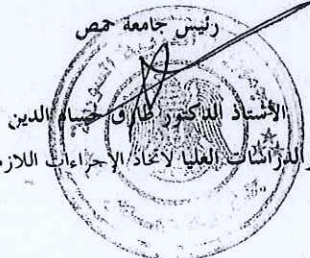 رئيس جامعة حمص
الأستاذ الدكتور طارق حسام الدين
والدراسات العليا لاتخاذ الإجراءات اللازم